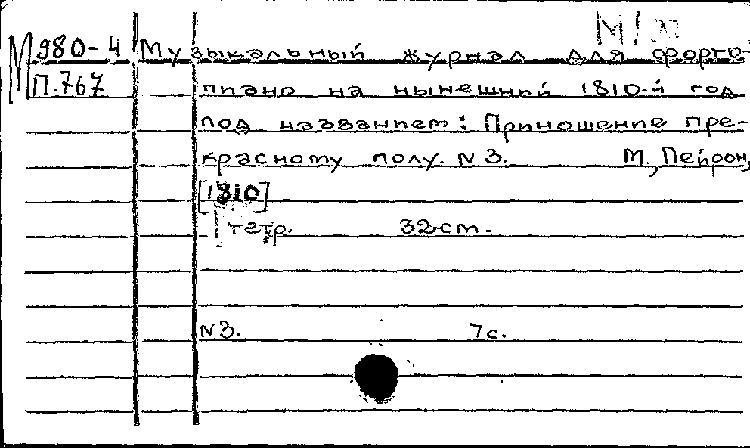 М 980-4 Музыкальный журнал для форте-
П.767 пиано на нынешний 1810-й год
под названием: Приношение пре-
красному полу. N 3. М., Пейрон,
[1810]
1 тетр. 32 cm.
N 3. 7 с.